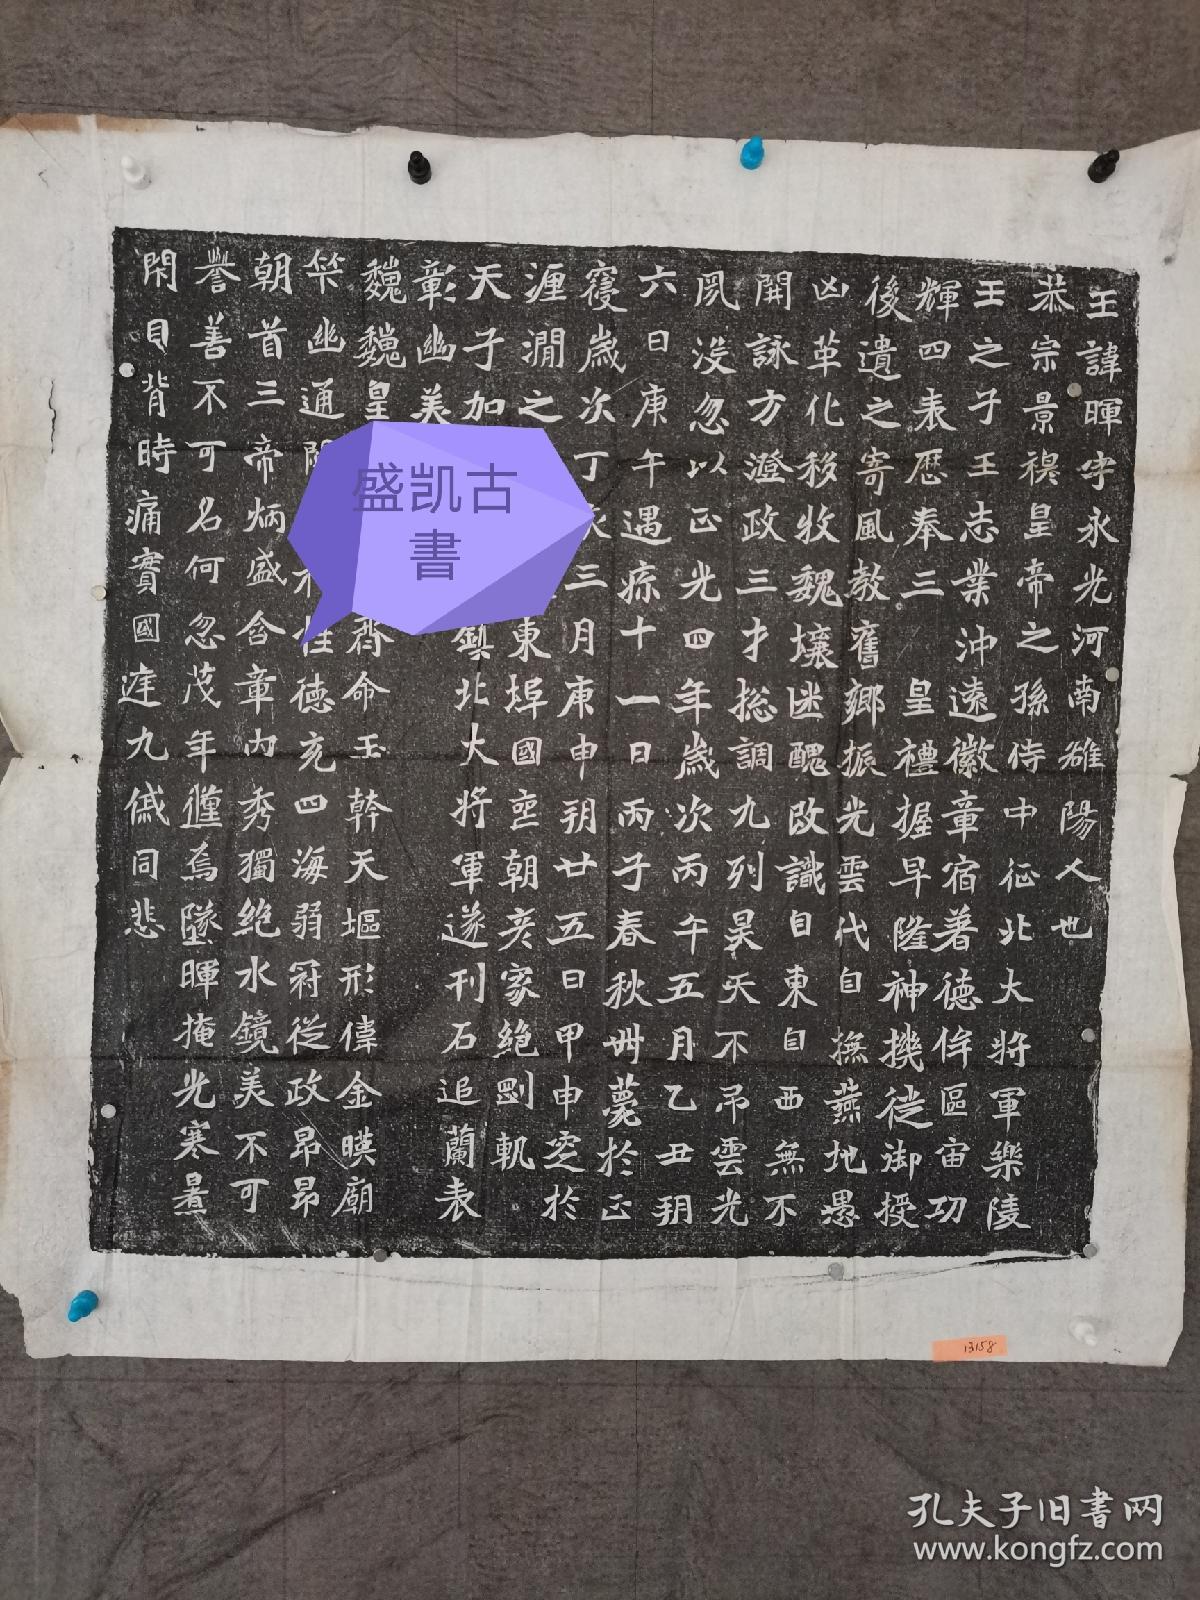 王諱暉字永光河南雒陽人也
恭宗景穆皇帝之孫侍中征北大将軍樂陵
王之子王志業沖遠徽章宿著德侔區宙功
輝四表歷奉三皇禮握早隆神機徙御授
後遺之寄風教舊鄉振光雲代自撫燕地愚
凶革化移牧魏壤迷醜改識自東自西無不
開詠方澄政三才捴調九列昊天不吊雲光
夙没忽以正光四年歲次丙午五月乙丑朔
六日庚午遇疾十一日丙子春秋卅薨於正
寢歲次丁三月庚申朔廿五日甲申窆於
湹澗之東埠國喪朝哀家絶
天子加鎮北大将軍遂刊石追蘭表
彰幽美
魏魏皇齊命玉幹天塸形偉金暎廟
幽通性德充四海弱冠從政昂昂
朝首三帝炳盛含章内秀獨絶水鏡美不可
譽善不可名何忽茂年焉墜暉掩光寒暑
時痛實國達九傶同悲
盛凯古
書
13158
孔夫子旧书网
www.kongfz.com